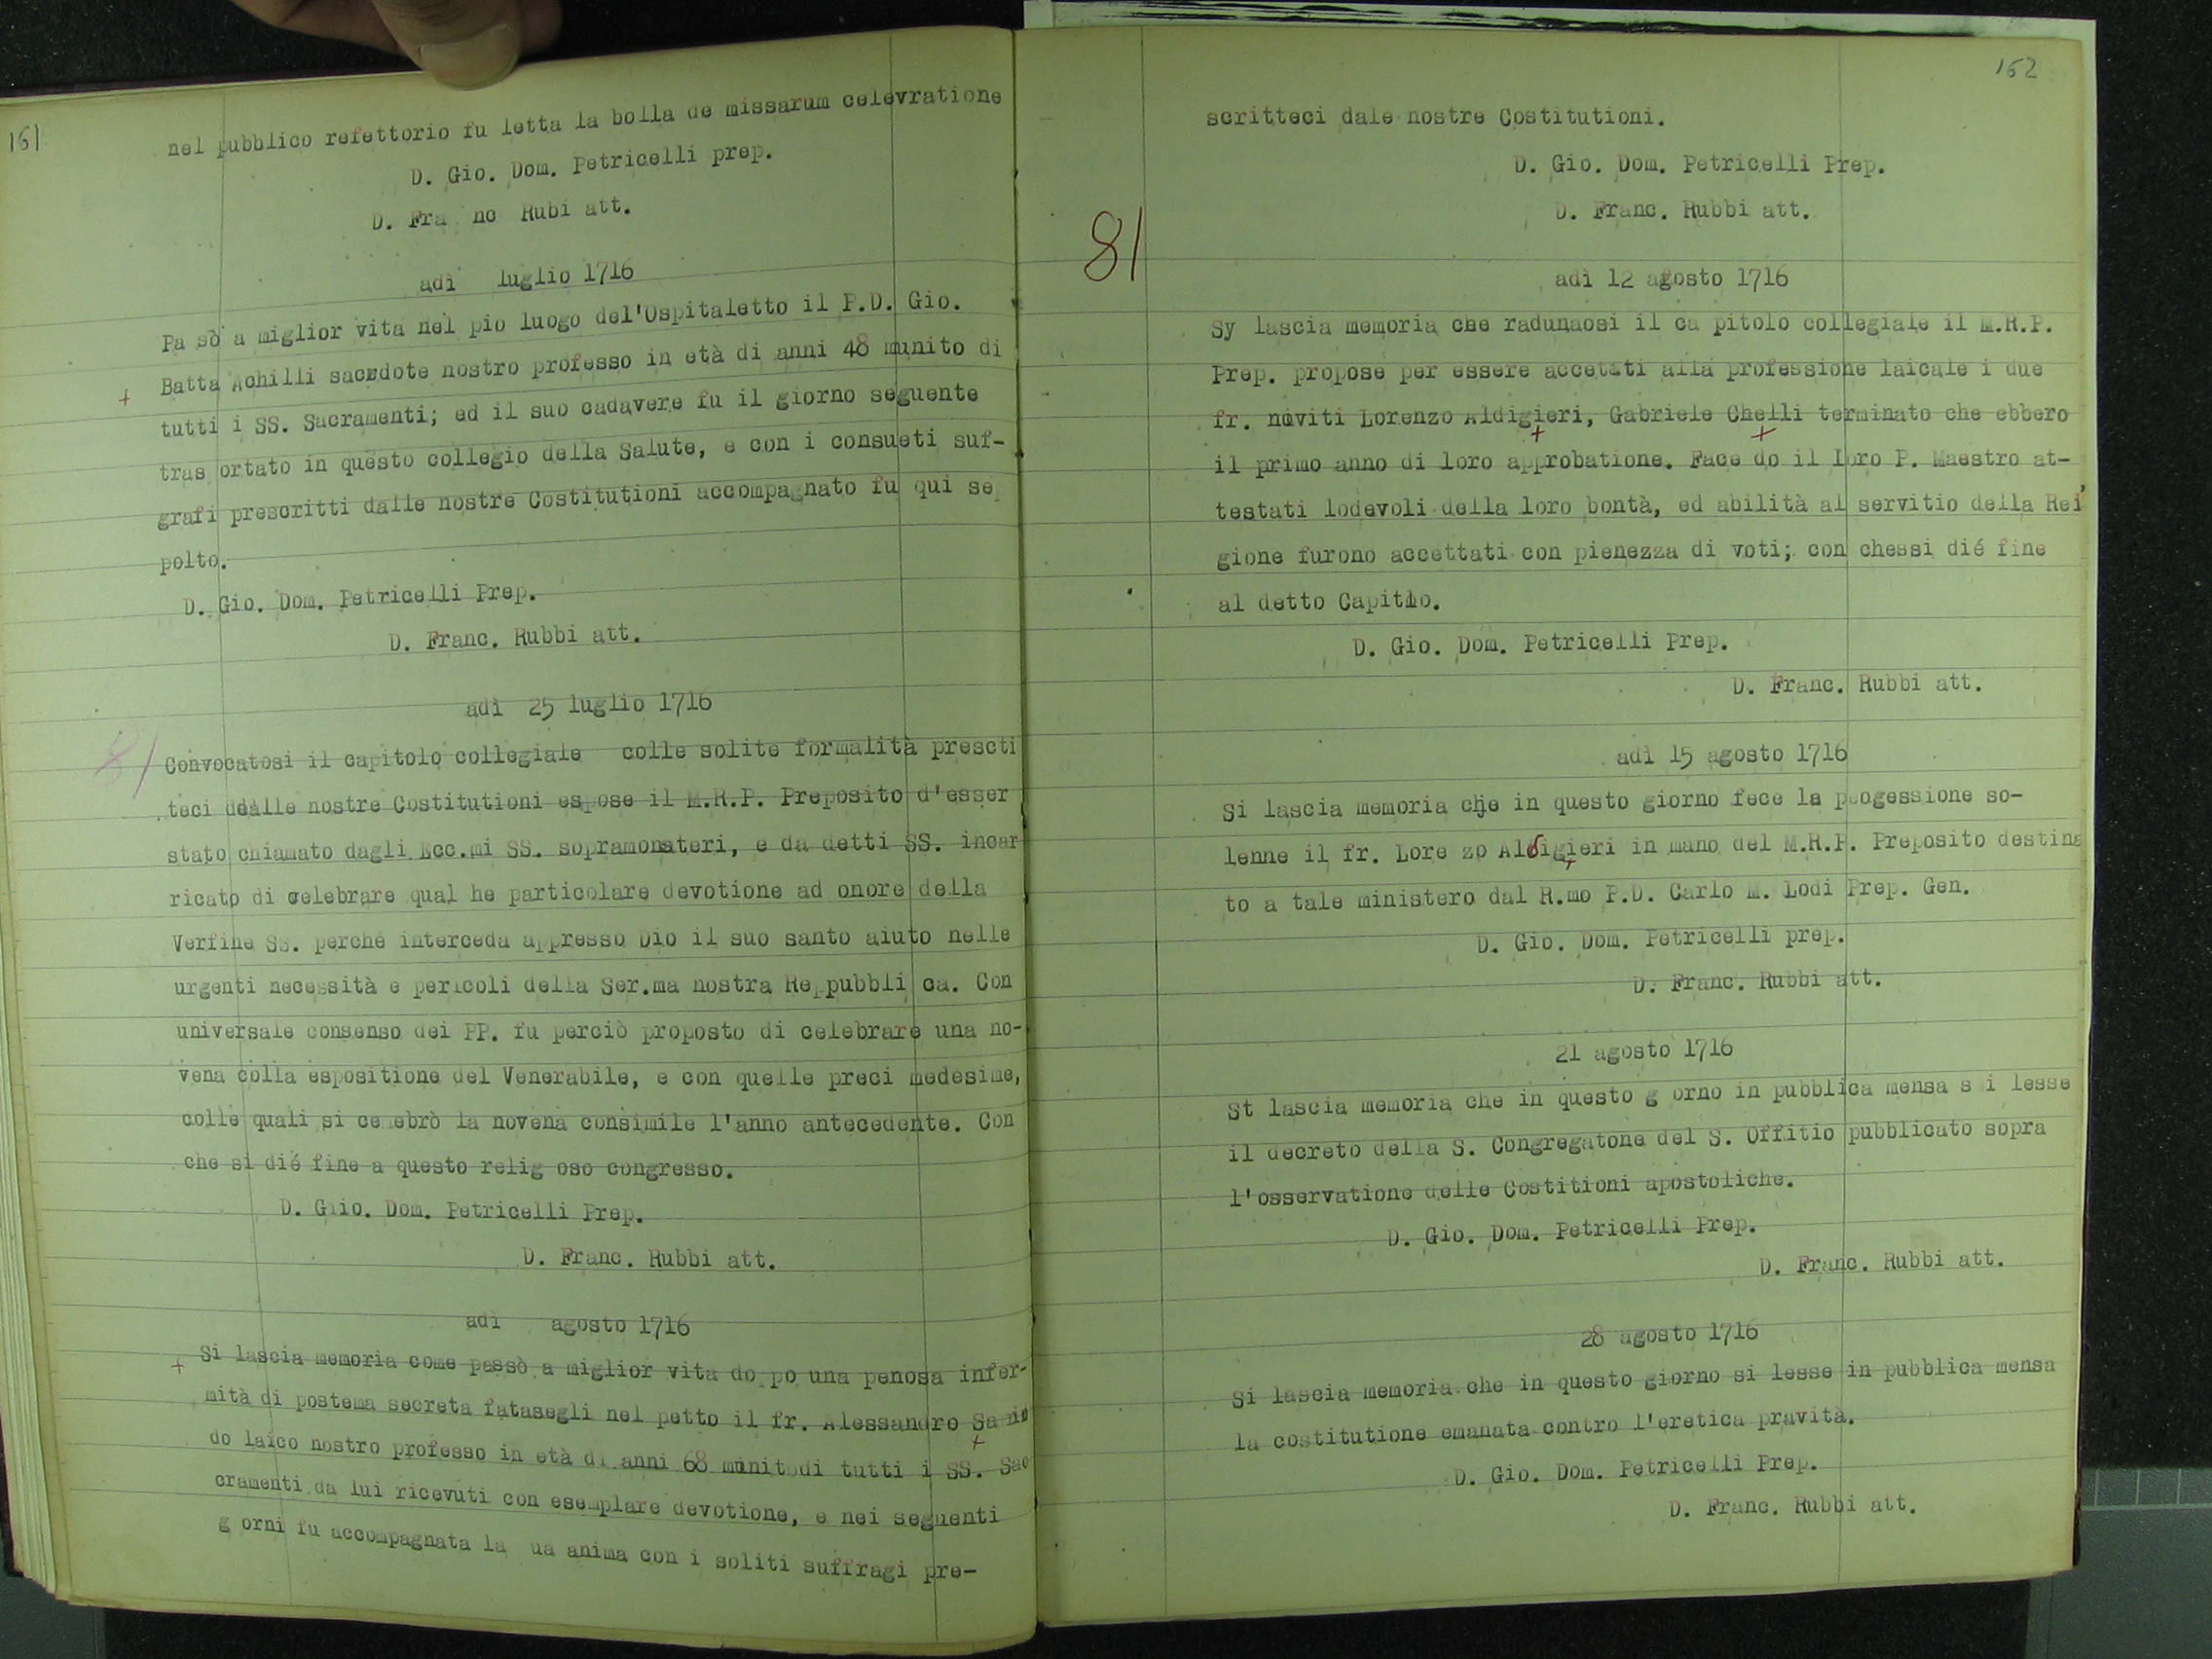 161
nel pubblico refettorio fu letta la bolla de missarum celevratione
D. Gio. Dom. Petricelli prep.
D. Fra nc Rubi att.
adì luglio 1716
Pa sò a miglior vita nel pio luogo del'Ospitaletto il P.D. Gio.
+ Batta Achilli sacrdote nostro professo in età di anni 48 munito di
tutti i SS. Sacramenti; ed il suo cadavere fu il giorno seguente
tras ortato in questo collegio della Salute, e con i consueti suf-
grafi prescritti dalle nostre Costitutioni accompagnato fu qui se
polto.
D. Gio. Dom. Petricelli Prep.
D. Franc. Rubbi att.
adì 25 luglio 1716
81
Convocatosi il capitolo collegiale colle solite formalità prescti
teci ddalle nostre Costitutioni espose il M.R.P. Preposito d'esser
stato chiamato dagli Ecc.mi SS. sopramonsteri, e da detti SS. incar
ricato di celebrare qual he particolare devotione ad onore della
Verfine SS. perché interceda appresso Dio il suo santo aiuto nelle
urgenti necessità e pericoli della Ser.ma nostra Reppubbli ca. Con
universale consenso dei PP. fu perciò proposto di celebrare una no-
vena colla espositione del Venerabile, e con quelle preci medesime,
colle quali si celebrò la novena consimile l'anno antecedente. Con
che si dié fine a questo relig oso congresso.
D. Giio. Dom. Petricelli Prep.
D. Franc. Rubbi att.
adì agosto 1716
+ Si lascia memoria come passò a miglior vita do po una penosa infer-
mità di postema secreta fatasegli nel petto il fr. Alessandro
do laico nostro professo in età di anni 68 munito di tutti i SS. Sac
cramenti da lui ricevuti con esemplare devotione, e nei seguenti
g orni fu accompagnata la ua anima con i soliti suffragi pre-
162
scritteci dale nostre Costitutioni.
D. Gio. Dom. Petricelli Prep.
D. Franc. Rubbi att.
81
adì 12 agosto 1716
Sy lascia memoria che radunaosi il ca pitolo collegiale il M.R.P.
Prep. propose per essere accetati alla professione laicale i due
fr. noviti Lorenzo Aldigieri, Gabriele Chelli terminato che ebbero
il primo anno di loro approbatione. Face do il loro P. Maestro at-
testati lodevoli della loro bontà, ed abilità al servitio della Rei
gione furono accettati con pienezza di voti; con chessi dié fine
al detto Capitlo.
D. Gio. Dom. Petricelli Prep.
D. Franc. Rubbi att.
adì 15 agosto 1716
Si lascia memoria che in questo giorno fece la progessione so-
lenne il fr. Lore zo Aldigieri in mano del M.R.P. Preposito destina
to a tale ministero dal R.mo P.D. Carlo M. Lodi Prep. Gen.
D. Gio. Dom. Petricelli prep.
D. Franc. Rubbi att.
21 agosto 1716
St lascia memoria che in questo g orno in pubblica mensa s i lesse
il decreto della S. Congregatone del S. Offitio pubblicato sopra
l'osservatione delle Costitioni apostoliche.
D. Gio. Dom. Petricelli Prep.
D. Franc. Rubbi att.
28 agosto 1716
Si lascia memoria che in questo giorno si lesse in pubblica mensa
la costitutione emanata contro l'eretica pravità.
D. Gio. Dom. Petricelli Prep.
D. Franc. Rubbi att.